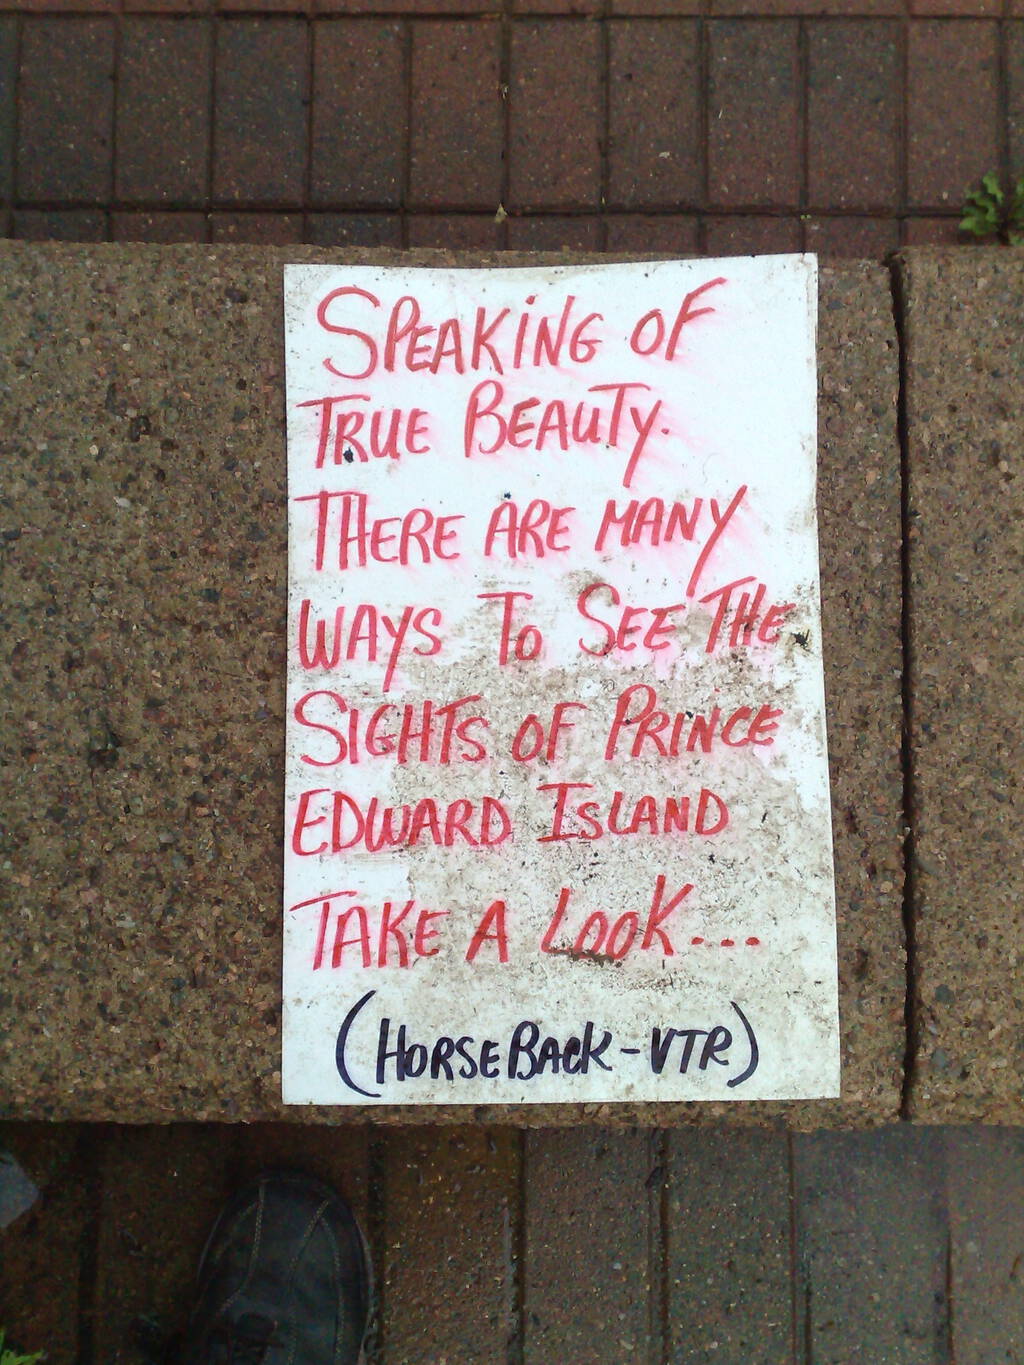 SPEAKING OF
TRUE BEAUTY.
THERE ARE MANY
WAYS TO SEE THE
SIGHTS OF PRINCE
EDWARD ISLAND
TAKE A LOOK....
(HORSEBACK-VTR)